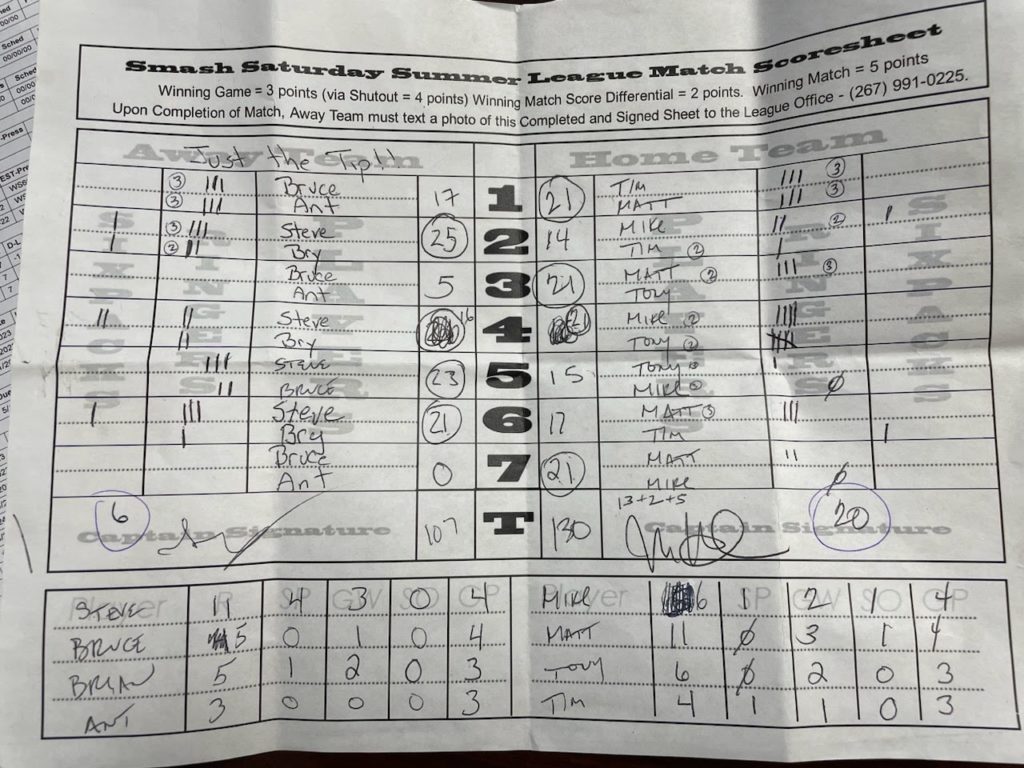 Smash Saturday Summer League Match Scoresheet
Winning Game = 3 points (via Shutout = 4 points) Winning Match Score Differential = 2 points. Winning Match = 5 points
Upon Completion of Match, Away Team must text a photo of this Completed and Signed Sheet to the League Office - (267) 991-0225.
Away Team Just the Tip!! Home Team
3 III Bruce 17 1 21 TIM III 3
3 III Ant MATT III 3
I 3 III Steve 25 2 14 MIKE II 2 I
I 2 II Bry TIM 2 I
Bruce 5 3 21 MATT 2 III 3
Ant TONY
II II Steve 16 4 21 MIKE 2 IIII
II Bry TONY 2
III STEVE 23 5 15 TONY I
II BRUCE MIKE Ø
I III Steve 21 6 17 MATT III
I Bry TIM I
Bruce 0 7 21 MATT II
Ant MIKE Ø
SIXPACKS SINGERS PLAYERS PLAYERS SINGERS SIXPACKS
13+2+5
6 Captain Signature 107 T 130 Captain Signature 20
Player R SP GW SO GP Player R SP GW SO GP
STEVE 11 4 3 0 4 MIKE 6 1 2 1 4
BRUCE 5 0 1 0 4 MATT 11 Ø 3 1 4
BRIAN 5 1 2 0 3 TONY 6 Ø 2 0 3
ANT 3 0 0 0 3 TIM 4 1 1 0 3